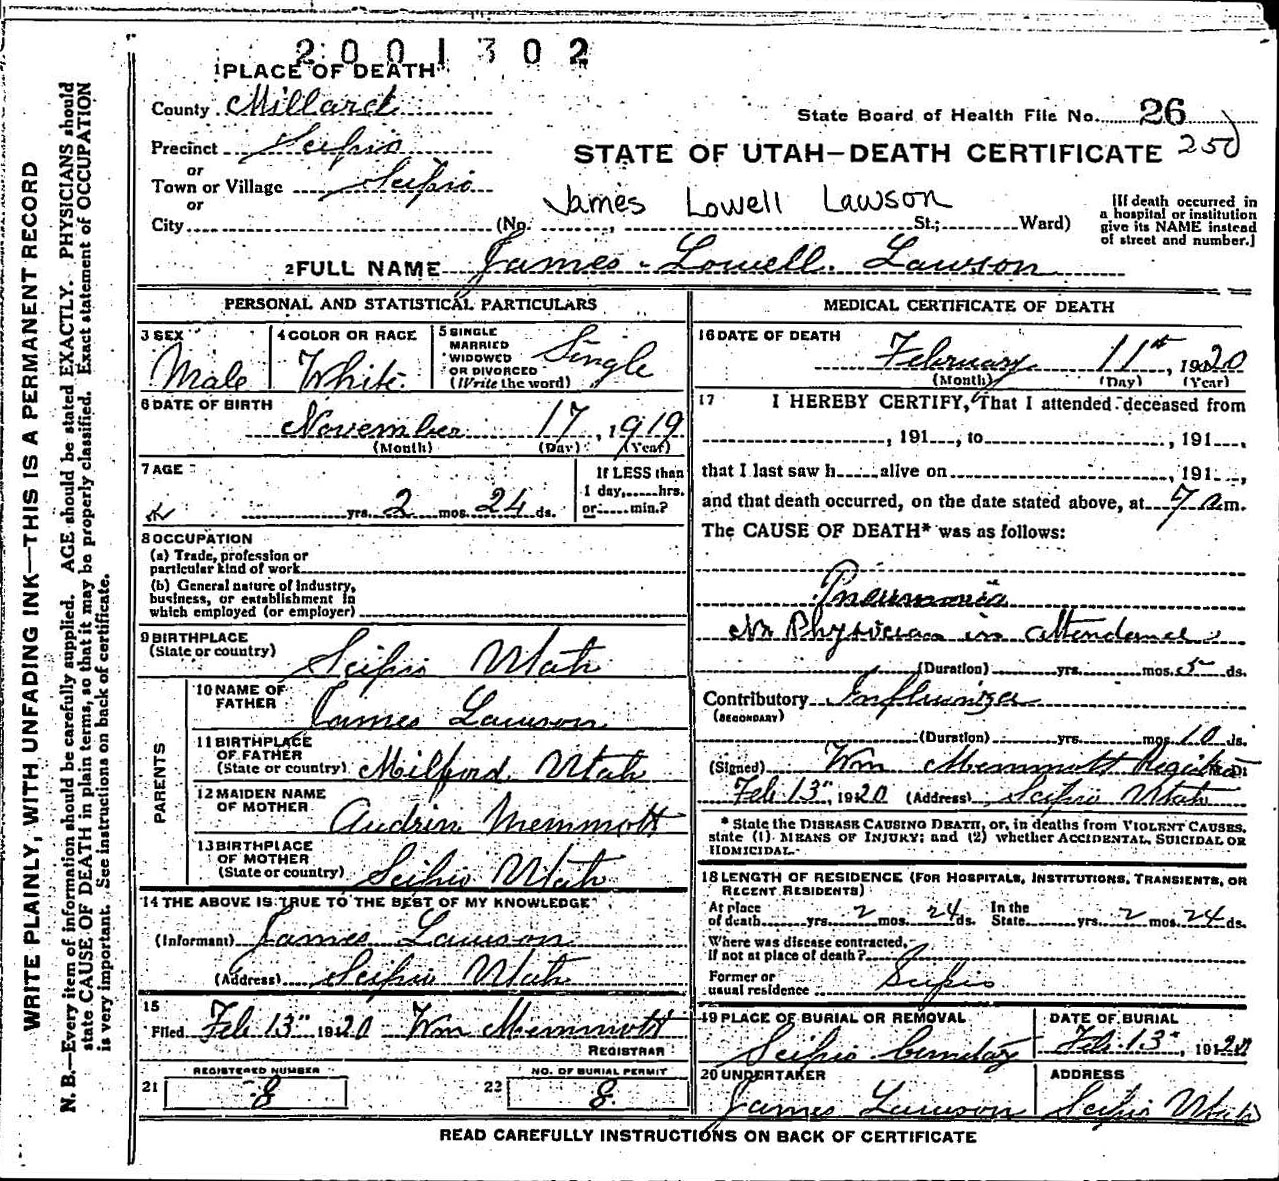 2001302
1 PLACE OF DEATH
County Millard
State Board of Health File No. 26
Precinct Scipio
250
STATE OF UTAH—DEATH CERTIFICATE
or
Town or Village Scipio
or
James Lowell Lawson
City (No. , St.; Ward)
[If death occurred in
a hospital or institution
give its NAME instead
of street and number.]
2 FULL NAME James Lowell Lawson
PERSONAL AND STATISTICAL PARTICULARS
3 SEX
Male
4 COLOR OR RACE
White
5 SINGLE
MARRIED
WIDOWED
OR DIVORCED
(Write the word)
Single
6 DATE OF BIRTH
November 17, 1919
(Month) (Day) (Year)
7 AGE
If LESS than
1 day, hrs.
or min.?
yrs. 2 mos. 24 ds.
8 OCCUPATION
(a) Trade, profession or
particular kind of work
(b) General nature of industry,
business, or establishment in
which employed (or employer)
9 BIRTHPLACE
(State or country)
Scipio Utah
PARENTS
10 NAME OF
FATHER
James Lawson
11 BIRTHPLACE
OF FATHER
(State or country) Milford Utah
12 MAIDEN NAME
OF MOTHER
Audrin Memmott
13 BIRTHPLACE
OF MOTHER
(State or country) Scipio Utah
14 THE ABOVE IS TRUE TO THE BEST OF MY KNOWLEDGE
(Informant) James Lawson
(Address) Scipio Utah
15
Filed Feb 13" 1920 Wm Memmott
REGISTRAR
21
REGISTERED NUMBER
8
22
NO. OF BURIAL PERMIT
8
MEDICAL CERTIFICATE OF DEATH
16 DATE OF DEATH
February 11th, 1920
(Month) (Day) (Year)
17 I HEREBY CERTIFY, That I attended deceased from
, 191 , to , 191 ,
that I last saw h alive on , 191 ,
and that death occurred, on the date stated above, at 7 a.m.
The CAUSE OF DEATH* was as follows:
Pneumonia
No Physician in attendance
(Duration) yrs. mos. 5 ds.
Contributory Influinza
(SECONDARY)
(Duration) yrs. mos. 10 ds.
(Signed) Wm Memmott Registrar
Feb 13", 1920 (Address) Scipio Utah
* State the DISEASE CAUSING DEATH, or, in deaths from VIOLENT CAUSES,
state (1) MEANS OF INJURY; and (2) whether ACCIDENTAL, SUICIDAL OR
HOMICIDAL.
18 LENGTH OF RESIDENCE (FOR HOSPITALS, INSTITUTIONS, TRANSIENTS, OR
RECENT RESIDENTS)
At place
of death yrs. 2 mos. 24 ds.
In the
State yrs. 2 mos. 24 ds.
Where was disease contracted,
if not at place of death?
Former or
usual residence Scipio
19 PLACE OF BURIAL OR REMOVAL
Scipio Cemetary
DATE OF BURIAL
Feb. 13", 1920
20 UNDERTAKER
James Lawson
ADDRESS
Scipio Utah
READ CAREFULLY INSTRUCTIONS ON BACK OF CERTIFICATE
WRITE PLAINLY, WITH UNFADING INK—THIS IS A PERMANENT RECORD
N. B.—Every item of information should be carefully supplied. AGE should be stated EXACTLY. PHYSICIANS should
state CAUSE OF DEATH in plain terms, so that it may be properly classified. Exact statement of OCCUPATION
is very important. See instructions on back of certificate.